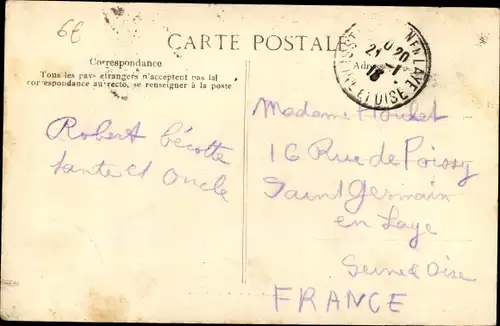 6€
CARTE POSTALE
Correspondance
Tous les pays étrangers n'acceptent pas la
correspondance au recto, se renseigner à la poste
Robert bécotte
tante et oncle
EN LAYE
20
21 -1
18
ET OISE
Madame
16 Rue de Poissy
Saint Germain
en Laye
Seine & Oise
FRANCE